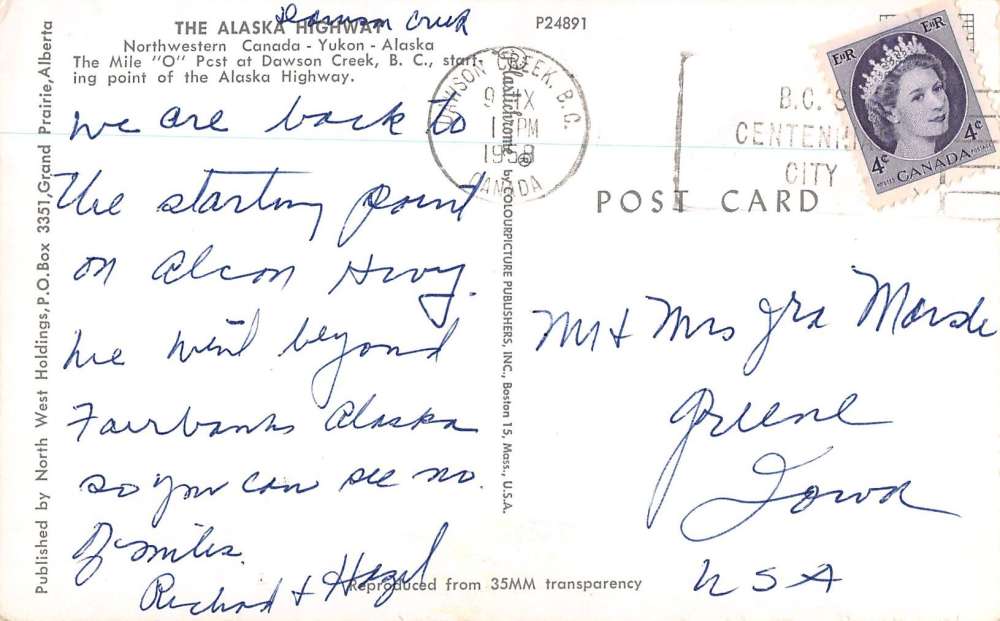 Dawson Creek
THE ALASKA HIGHWAY
Northwestern Canada - Yukon - Alaska
The Mile "O" Post at Dawson Creek, B. C., start-
ing point of the Alaska Highway.
P24891
We are back to
the starting point
on Alcan Hwy.
We went beyond
Fairbanks Alaska
so you can see no.
of miles.
Richard & Hazel
Published by North West Holdings, P.O. Box 3351, Grand Prairie, Alberta
Plastichrome ® by COLOURPICTURE PUBLISHERS, INC., Boston 15, Mass., U.S.A.
DAWSON CREEK, B.C.
9 IX
1 PM
1958
CANADA
B.C.'S
CENTENNI
CITY
EIIR EIIR
4¢ 4¢
POSTES CANADA POSTAGE
POST CARD
Mr & Mrs Ira
Greene
Iowa
USA
Reproduced from 35MM transparency